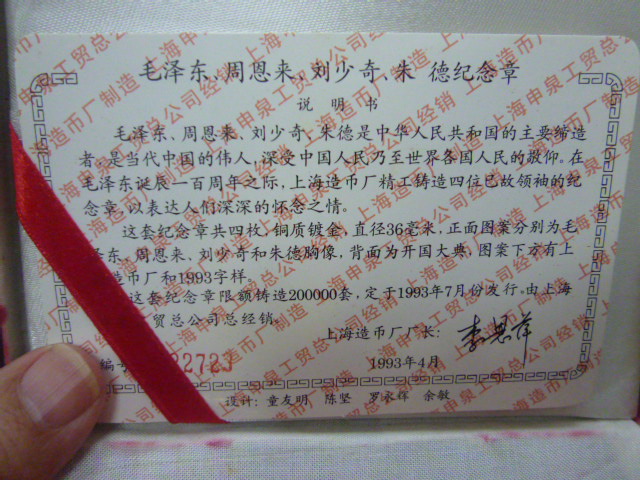 毛泽东、周恩来、刘少奇、朱 德纪念章
说 明 书
毛泽东、周恩来、刘少奇、朱德是中华人民共和国的主要缔造
者,是当代中国的伟人,深受中国人民乃至世界各国人民的敬仰。在
毛泽东诞辰一百周年之际,上海造币厂精工铸造四位已故领袖的纪
念章,以表达人们深深的怀念之情。
这套纪念章共四枚,铜质镀金,直径36毫米,正面图案分别为毛
泽东、周恩来、刘少奇和朱德胸像,背面为开国大典,图案下方有上
造币厂和1993字样。
这套纪念章限额铸造200000套,定于1993年7月份发行。由上海
贸总公司总经销。
上海造币厂厂长:
编号 22723
1993年4月
设计:童友明 陈坚 罗永辉 余敏
上海造币厂制造 上海申泉工贸总公司经销